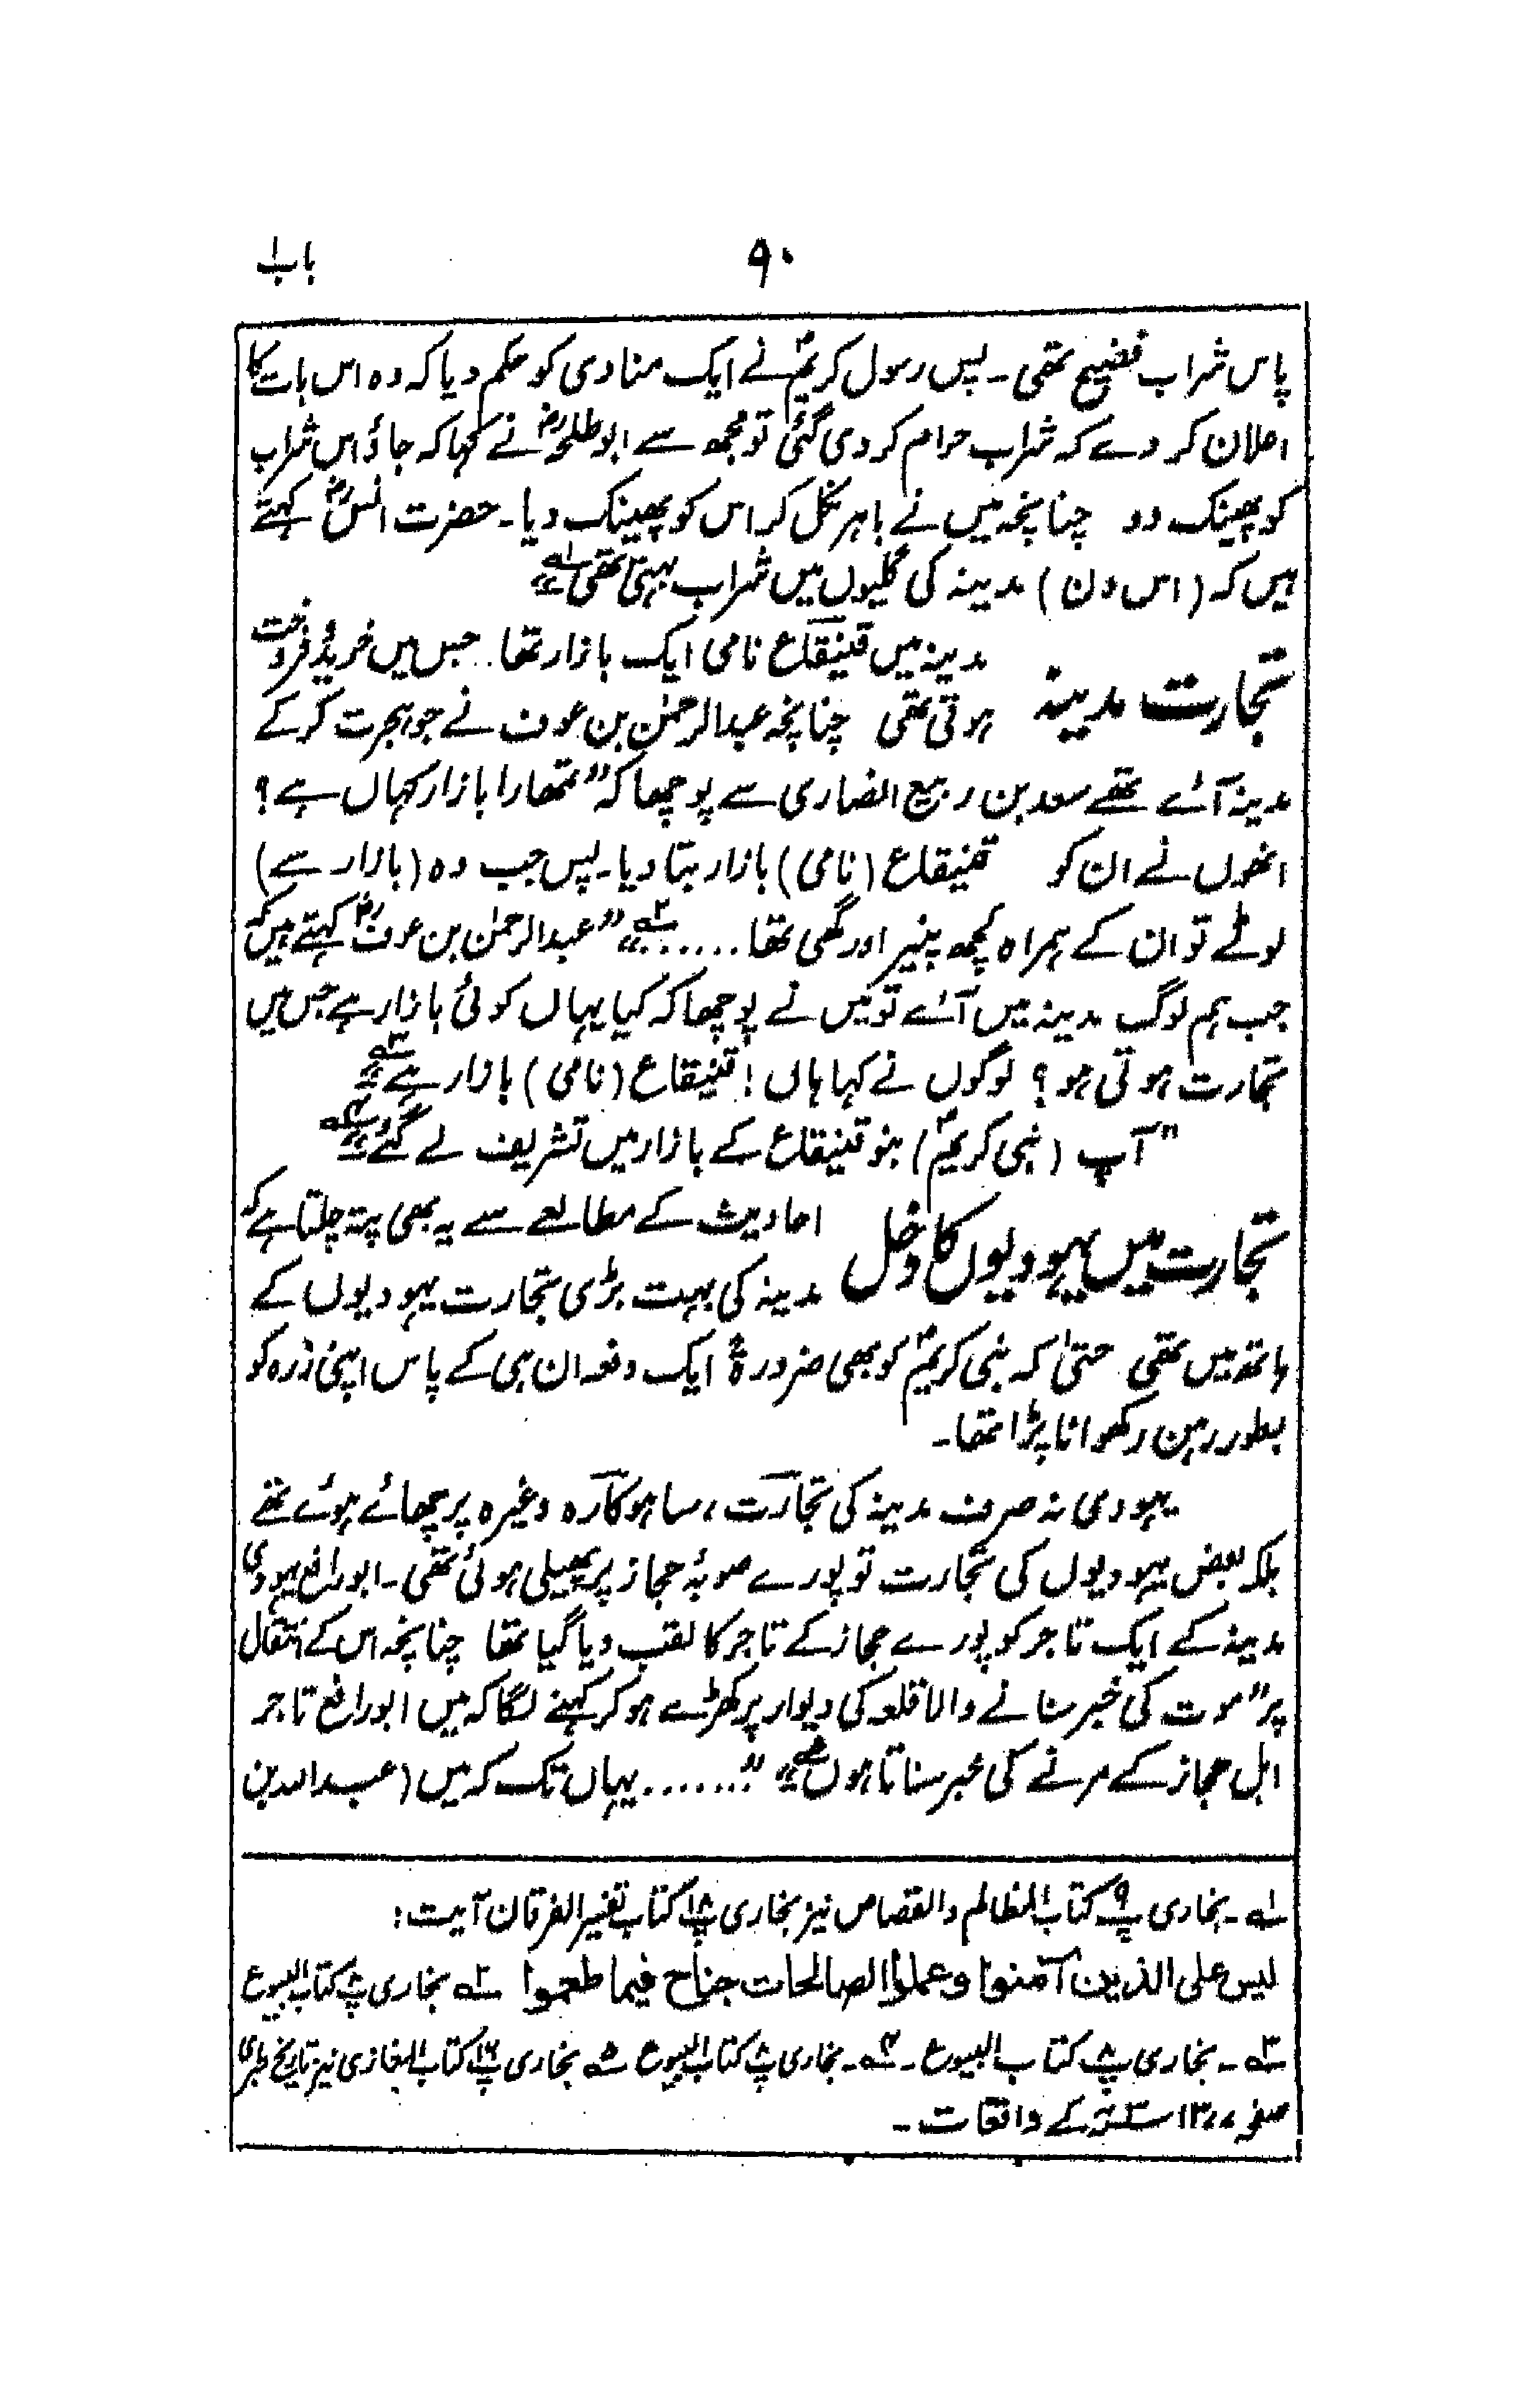 باب ۱
۹۰
پاس شراب فضیح تھی۔ پس رسول کریمؐ نے ایک منادی کو حکم دیا کہ وہ اس بات کا
اعلان کر دے کہ شراب حرام کر دی گئی تو مجھ سے ابوطلحہؓ نے کہا کہ جاؤ اس شراب
کو پھینک دو چنانچہ میں نے باہر نکل کر اس کو پھینک دیا۔ حضرت انسؓ کہتے
ہیں کہ (اس دن) مدینہ کی گلیوں میں شراب بہتی تھی"۱؎
تجارت مدینہ
مدینہ میں قینقاع نامی ایک بازار تھا۔ جس میں خرید و فروخت
ہوتی تھی چنانچہ عبدالرحمٰن بن عوف نے جو ہجرت کر کے
مدینہ آئے تھے سعد بن ربیع انصاری سے پوچھا کہ "تمھارا بازار کہاں ہے؟
انھوں نے ان کو قینقاع (نامی) بازار بتا دیا۔ پس جب وہ (بازار سے)
لوٹے تو ان کے ہمراہ کچھ پنیر اور گھی تھا......"۲؎ "عبدالرحمٰن بن عوفؓ کہتے ہیں کہ
جب ہم لوگ مدینہ میں آئے تو میں نے پوچھا کہ کیا یہاں کوئی بازار ہے جس میں
تجارت ہوتی ہو؟ لوگوں نے کہا ہاں! قینقاع (نامی) بازار ہے"۳؎
"آپ (نبی کریمؐ) بنو قینقاع کے بازار میں تشریف لے گئے"۴؎
تجارت میں یہودیوں کا دخل
احادیث کے مطالعے سے یہ بھی پتہ چلتا ہے کہ
مدینہ کی بہت بڑی تجارت یہودیوں کے
ہاتھ میں تھی حتیٰ کہ نبی کریمؐ کو بھی ضرورۃً ایک دفعہ ان ہی کے پاس اپنی زرہ کو
بطور رہن رکھوانا پڑا تھا۔
یہودی نہ صرف مدینہ کی تجارت، ساہوکارہ وغیرہ پر چھائے ہوئے تھے
بلکہ بعض یہودیوں کی تجارت تو پورے صوبۂ حجاز پر پھیلی ہوئی تھی۔ ابورافع یہودی
مدینہ کے ایک تاجر کو پورے حجاز کے تاجر کا لقب دیا گیا تھا چنانچہ اس کے انتقال
پر "موت کی خبر سنانے والا قلعہ کی دیوار پر کھڑے ہو کر کہنے لگا کہ میں ابورافع تاجر
اہل حجاز کے مرنے کی خبر سناتا ہوں"۵؎ "......یہاں تک کہ میں (عبداللہ بن
۱؎۔ بخاری پ۹ کتاب المظالم والقصاص نیز بخاری پ۱۸ کتاب تفسیر الفرقان آیت:
لیس علی الذین آمنوا وعملوا الصالحات جناح فیما طعموا ۲؎ بخاری پ۸ کتاب البیوع
۳؎۔ بخاری پ۸ کتاب البیوع۔ ۴؎۔ بخاری پ۸ کتاب البیوع ۵؎ بخاری پ۱۶ کتاب المغازی نیز تاریخ طبری
صفحہ ۱۳۷۷ ۳ھ کے واقعات۔